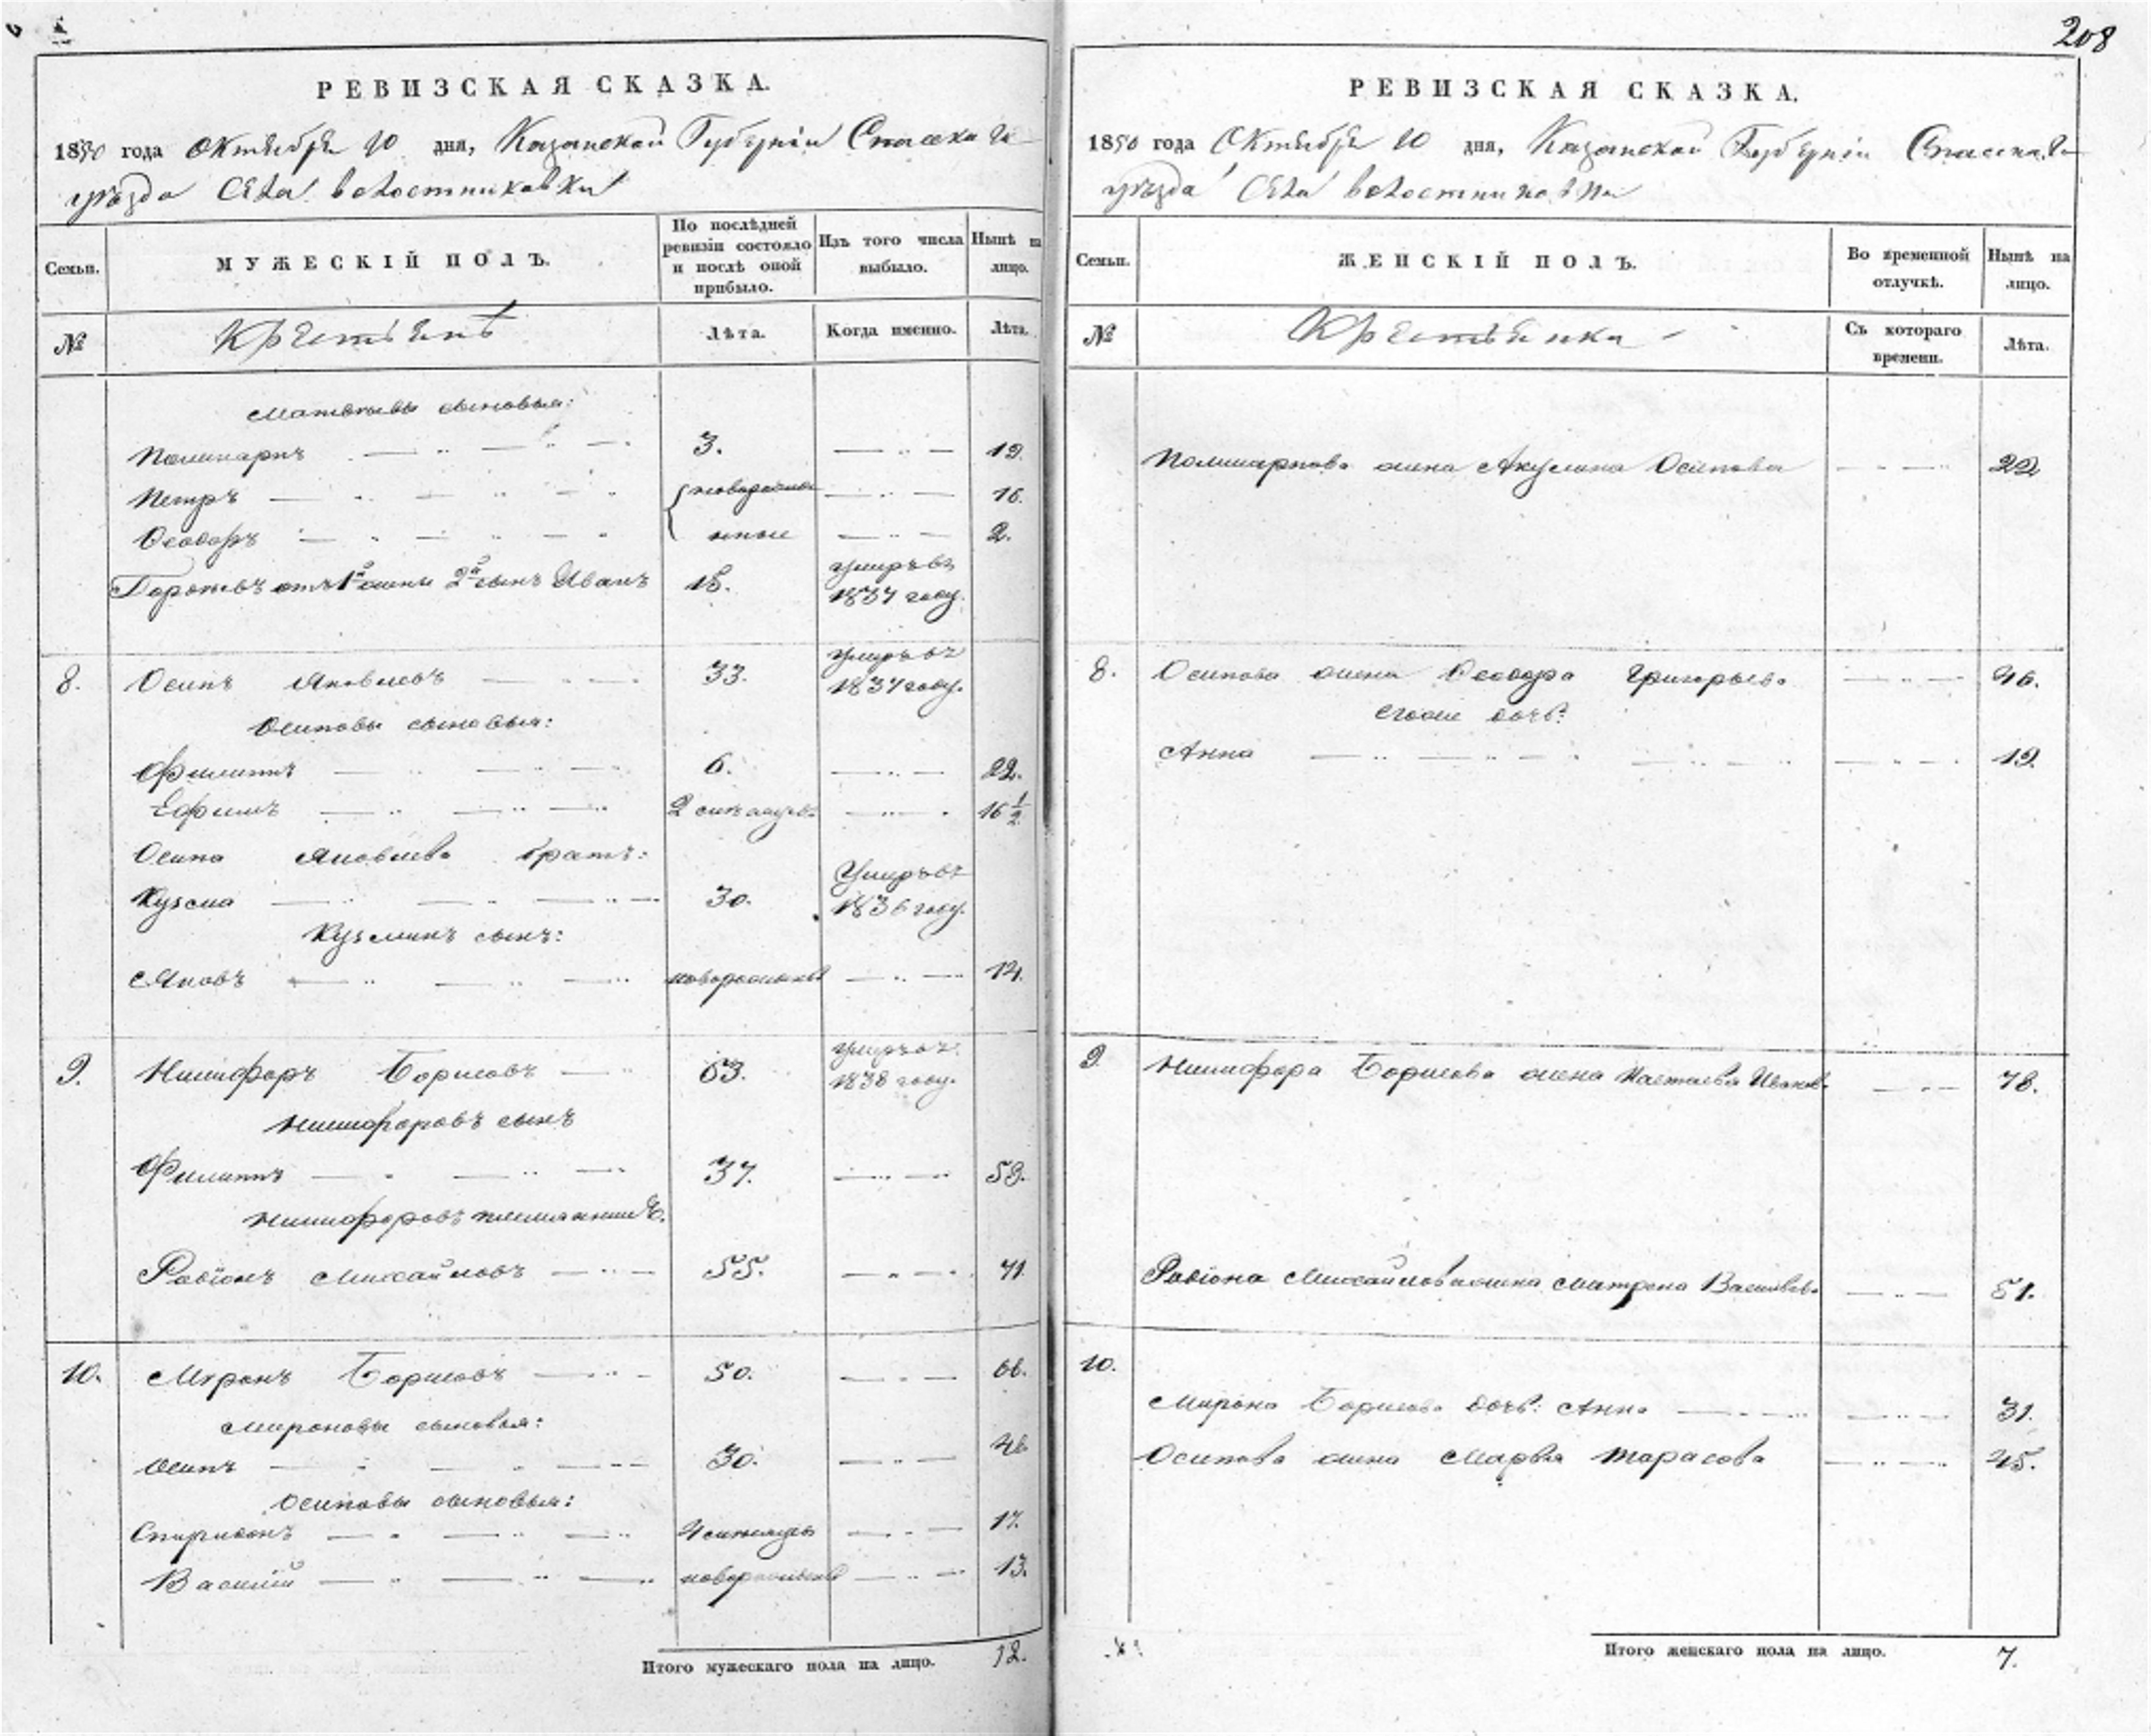 208
РЕВИЗСКАЯ СКАЗКА.
1850 года Октября 10 дня, Казанской Губерніи Спаскаго
уѣзда Села Волостниковки
Семьи.
МУЖЕСКІЙ ПОЛЪ.
По послѣдней ревизіи состояло и послѣ оной прибыло.
Изъ того числа выбыло.
Нынѣ на лицо.
№
Лѣта.
Когда именно.
Лѣта.
Матвѣевы сыновья:
Поликарпъ 3. 19.
Петръ новорожден 16.
Ѳеодоръ ные 2.
отъ 1й жены 2й сынъ Иванъ 15. умеръ въ 1837 году.
8. Осипъ Яковлевъ 33. умеръ въ 1837 году.
Осиповы сыновья:
Филиппъ 6. 22.
Ефимъ 2 16 1/2
Осипа Яковлева братъ:
Кузма 30. Умеръ въ 1836 году.
Кузминъ сынъ:
Яковъ новорожденный 14.
9. Никифоръ Борисовъ 63. умеръ въ 1838 году.
Никифоровъ сынъ
Филиппъ 37. 53.
Никифоровъ племянникъ.
Родіонъ Михайловъ 55. 71.
10. Миронъ Борисовъ 50. 66.
Мироновы сыновья:
Осипъ 30. 46.
Осиповы сыновья:
Спиридонъ 4 17.
Василій новорожденный 13.
Итого мужескаго пола на лицо. 12.
РЕВИЗСКАЯ СКАЗКА.
1850 года Октября 10 дня, Казанской Губерніи Спаскаго
уѣзда Села Волостниковки
Семьи.
ЖЕНСКІЙ ПОЛЪ.
Во временной отлучкѣ.
Нынѣ на лицо.
№
Съ котораго времени.
Лѣта.
Поликарпова жена Акулина Осипова 22
8. Осипова жена Ѳеодора Григорьева 46.
Его же дочь:
Анна 19.
9. Никифора Борисова жена Настасья Иванова 78.
Родіона Михайлова жена Матрена Васильева 51.
10.
Мирона Борисова дочь: Анна 31.
Осипова жена Марья Тарасова 45.
Итого женскаго пола на лицо. 7.